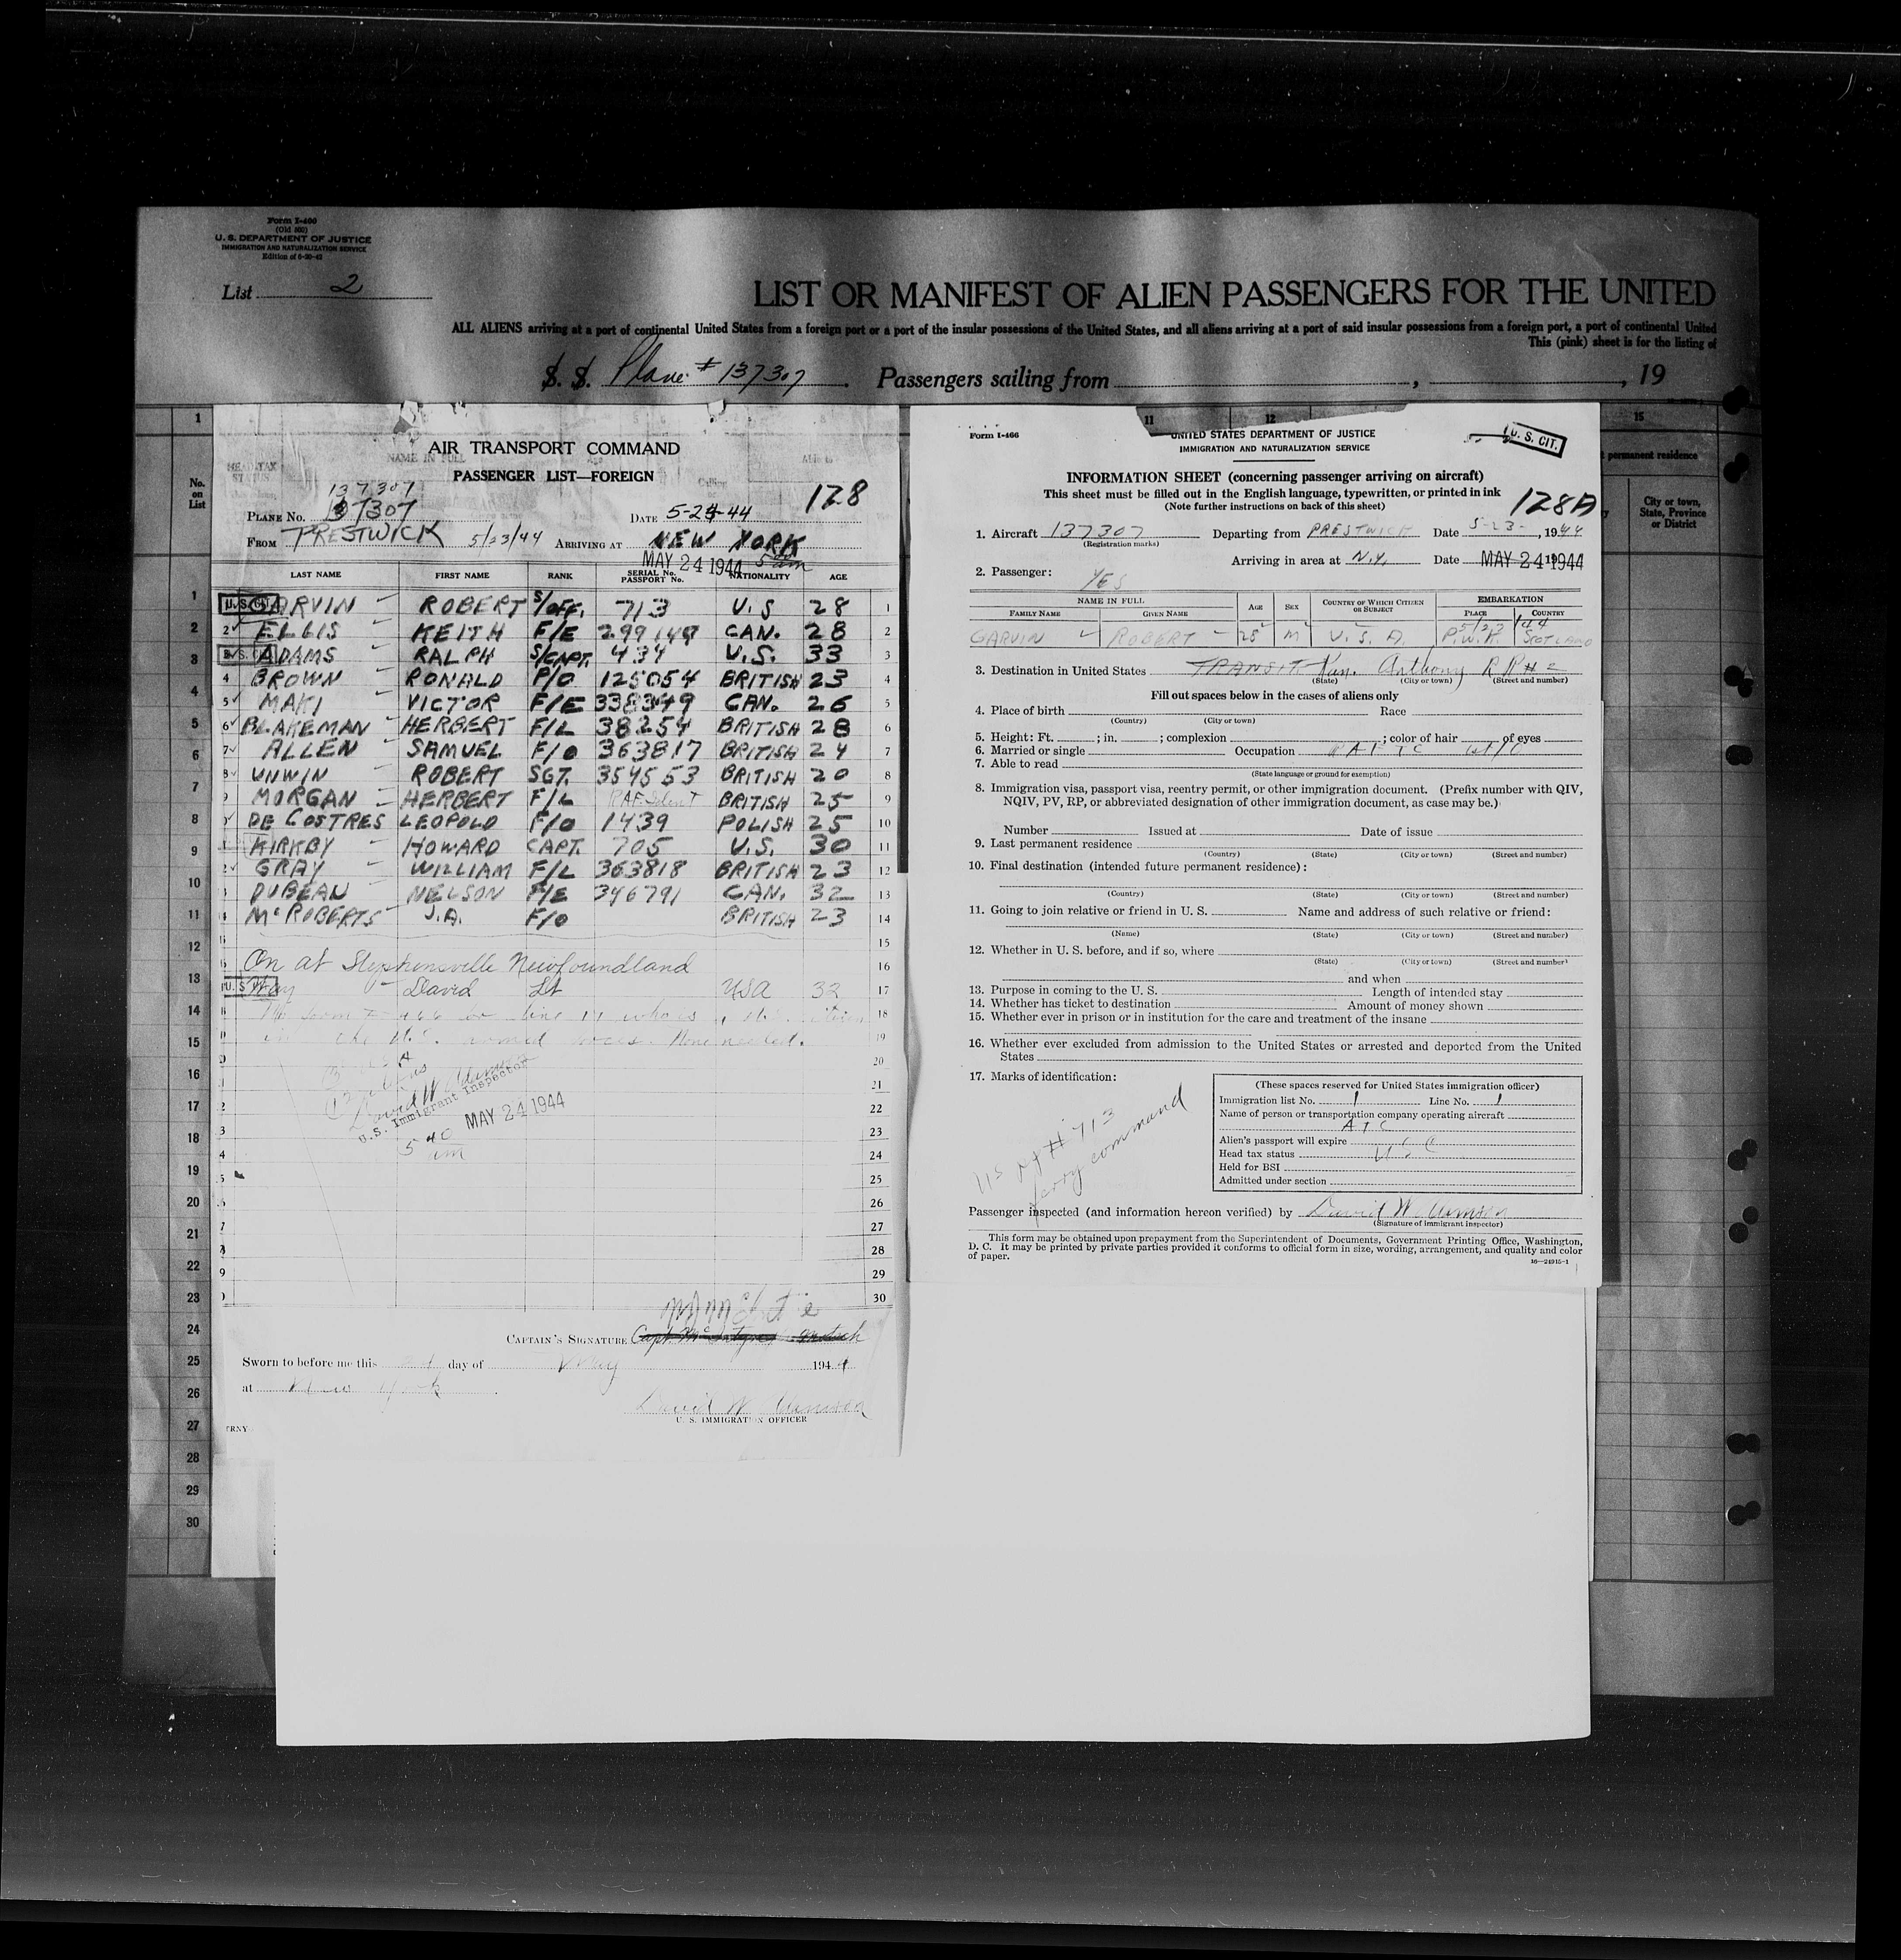 Form I-400
(Old 500)
U. S. DEPARTMENT OF JUSTICE
IMMIGRATION AND NATURALIZATION SERVICE
List 2
LIST OR MANIFEST OF ALIEN PASSENGERS FOR THE UNITED
ALL ALIENS arriving at a port of continental United States from a foreign port or a port of the insular possessions of the United States, and all aliens arriving at a port of said insular possessions from a foreign port, a port of continental United
This (pink) sheet is for the listing of
S. S. Plane # 137307. Passengers sailing from , , 19
AIR TRANSPORT COMMAND
PASSENGER LIST—FOREIGN
128
137307
PLANE NO. 37307 DATE 5-24-44
FROM PRESTWICK 5/23/44 ARRIVING AT NEW YORK
MAY 24 1944 5 am
LAST NAME FIRST NAME RANK SERIAL NO. PASSPORT NO. NATIONALITY AGE
U. S. CIT. GARVIN ROBERT S/OFF. 713 U.S 28 1
2 ELLIS KEITH F/E 299149 CAN. 28 2
U. S. CIT. ADAMS RALPH S/CAPT. 434 U.S. 33 3
4 BROWN RONALD P/O 125054 BRITISH 23 4
5 MAKI VICTOR F/E 338349 CAN. 26 5
6 BLAKEMAN HERBERT F/L 38254 BRITISH 28 6
7 ALLEN SAMUEL F/O 363817 BRITISH 24 7
8 UNWIN ROBERT SGT. 354553 BRITISH 20 8
9 MORGAN HERBERT F/L RAF Ident BRITISH 25 9
DE COSTRES LEOPOLD F/O 1439 POLISH 25 10
KIRKBY HOWARD CAPT. 705 U.S. 30 11
2 GRAY WILLIAM F/L 363818 BRITISH 23 12
3 DUBEAN NELSON F/E 346791 CAN. 32 13
4 McROBERTS J.A. F/O BRITISH 23 14
15
On at Stephensville Newfoundland 16
U. S. CIT. David Lt USA 32 17
No form I-466 for line 17 who is 18
in the U.S. armed forces. None needed. 19
20
21
22
23
24
25
26
27
28
29
30
U.S. Immigrant Inspector
MAY 24 1944
5 40 am
CAPTAIN'S SIGNATURE
Sworn to before me this 24 day of May 1944
at New York
U. S. IMMIGRATION OFFICER
No. on List
1
2
3
4
5
6
7
8
9
10
11
12
13
14
15
16
17
18
19
20
21
22
23
24
25
26
27
28
29
30
Form I-466
11 12 15
UNITED STATES DEPARTMENT OF JUSTICE
IMMIGRATION AND NATURALIZATION SERVICE
U. S. CIT.
INFORMATION SHEET (concerning passenger arriving on aircraft)
This sheet must be filled out in the English language, typewritten, or printed in ink
(Note further instructions on back of this sheet)
128A
1. Aircraft 137307 Departing from PRESTWICK Date 5-23-, 1944
(Registration marks)
Arriving in area at N.Y. Date MAY 24 1944
2. Passenger: YES
NAME IN FULL AGE SEX COUNTRY OF WHICH CITIZEN OR SUBJECT EMBARKATION
FAMILY NAME GIVEN NAME PLACE COUNTRY
5/23/44
GARVIN ROBERT 28 M U. S. A. P.W.K. SCOTLAND
3. Destination in United States TRANSIT Kan. Anthony RR#2
(State) (City or town) (Street and number)
Fill out spaces below in the cases of aliens only
4. Place of birth Race
(Country) (City or town)
5. Height: Ft. ; in. ; complexion ; color of hair of eyes
6. Married or single Occupation R A F T C
7. Able to read
(State language or ground for exemption)
8. Immigration visa, passport visa, reentry permit, or other immigration document. (Prefix number with QIV,
NQIV, PV, RP, or abbreviated designation of other immigration document, as case may be.)
Number Issued at Date of issue
9. Last permanent residence
(Country) (State) (City or town) (Street and number)
10. Final destination (intended future permanent residence):
(Country) (State) (City or town) (Street and number)
11. Going to join relative or friend in U. S. Name and address of such relative or friend:
(Name) (State) (City or town) (Street and number)
12. Whether in U. S. before, and if so, where
(State) (City or town) (Street and number)
and when
13. Purpose in coming to the U. S. Length of intended stay
14. Whether has ticket to destination Amount of money shown
15. Whether ever in prison or in institution for the care and treatment of the insane
16. Whether ever excluded from admission to the United States or arrested and deported from the United
States
17. Marks of identification:
US ppt # 713
ferry command
(These spaces reserved for United States immigration officer)
Immigration list No. 1 Line No. 1
Name of person or transportation company operating aircraft
A T C
Alien's passport will expire
Head tax status U S C
Held for BSI
Admitted under section
Passenger inspected (and information hereon verified) by
(Signature of immigrant inspector)
This form may be obtained upon prepayment from the Superintendent of Documents, Government Printing Office, Washington,
D. C. It may be printed by private parties provided it conforms to official form in size, wording, arrangement, and quality and color
of paper.
16—24915-1
permanent residence
City or town, State, Province or District